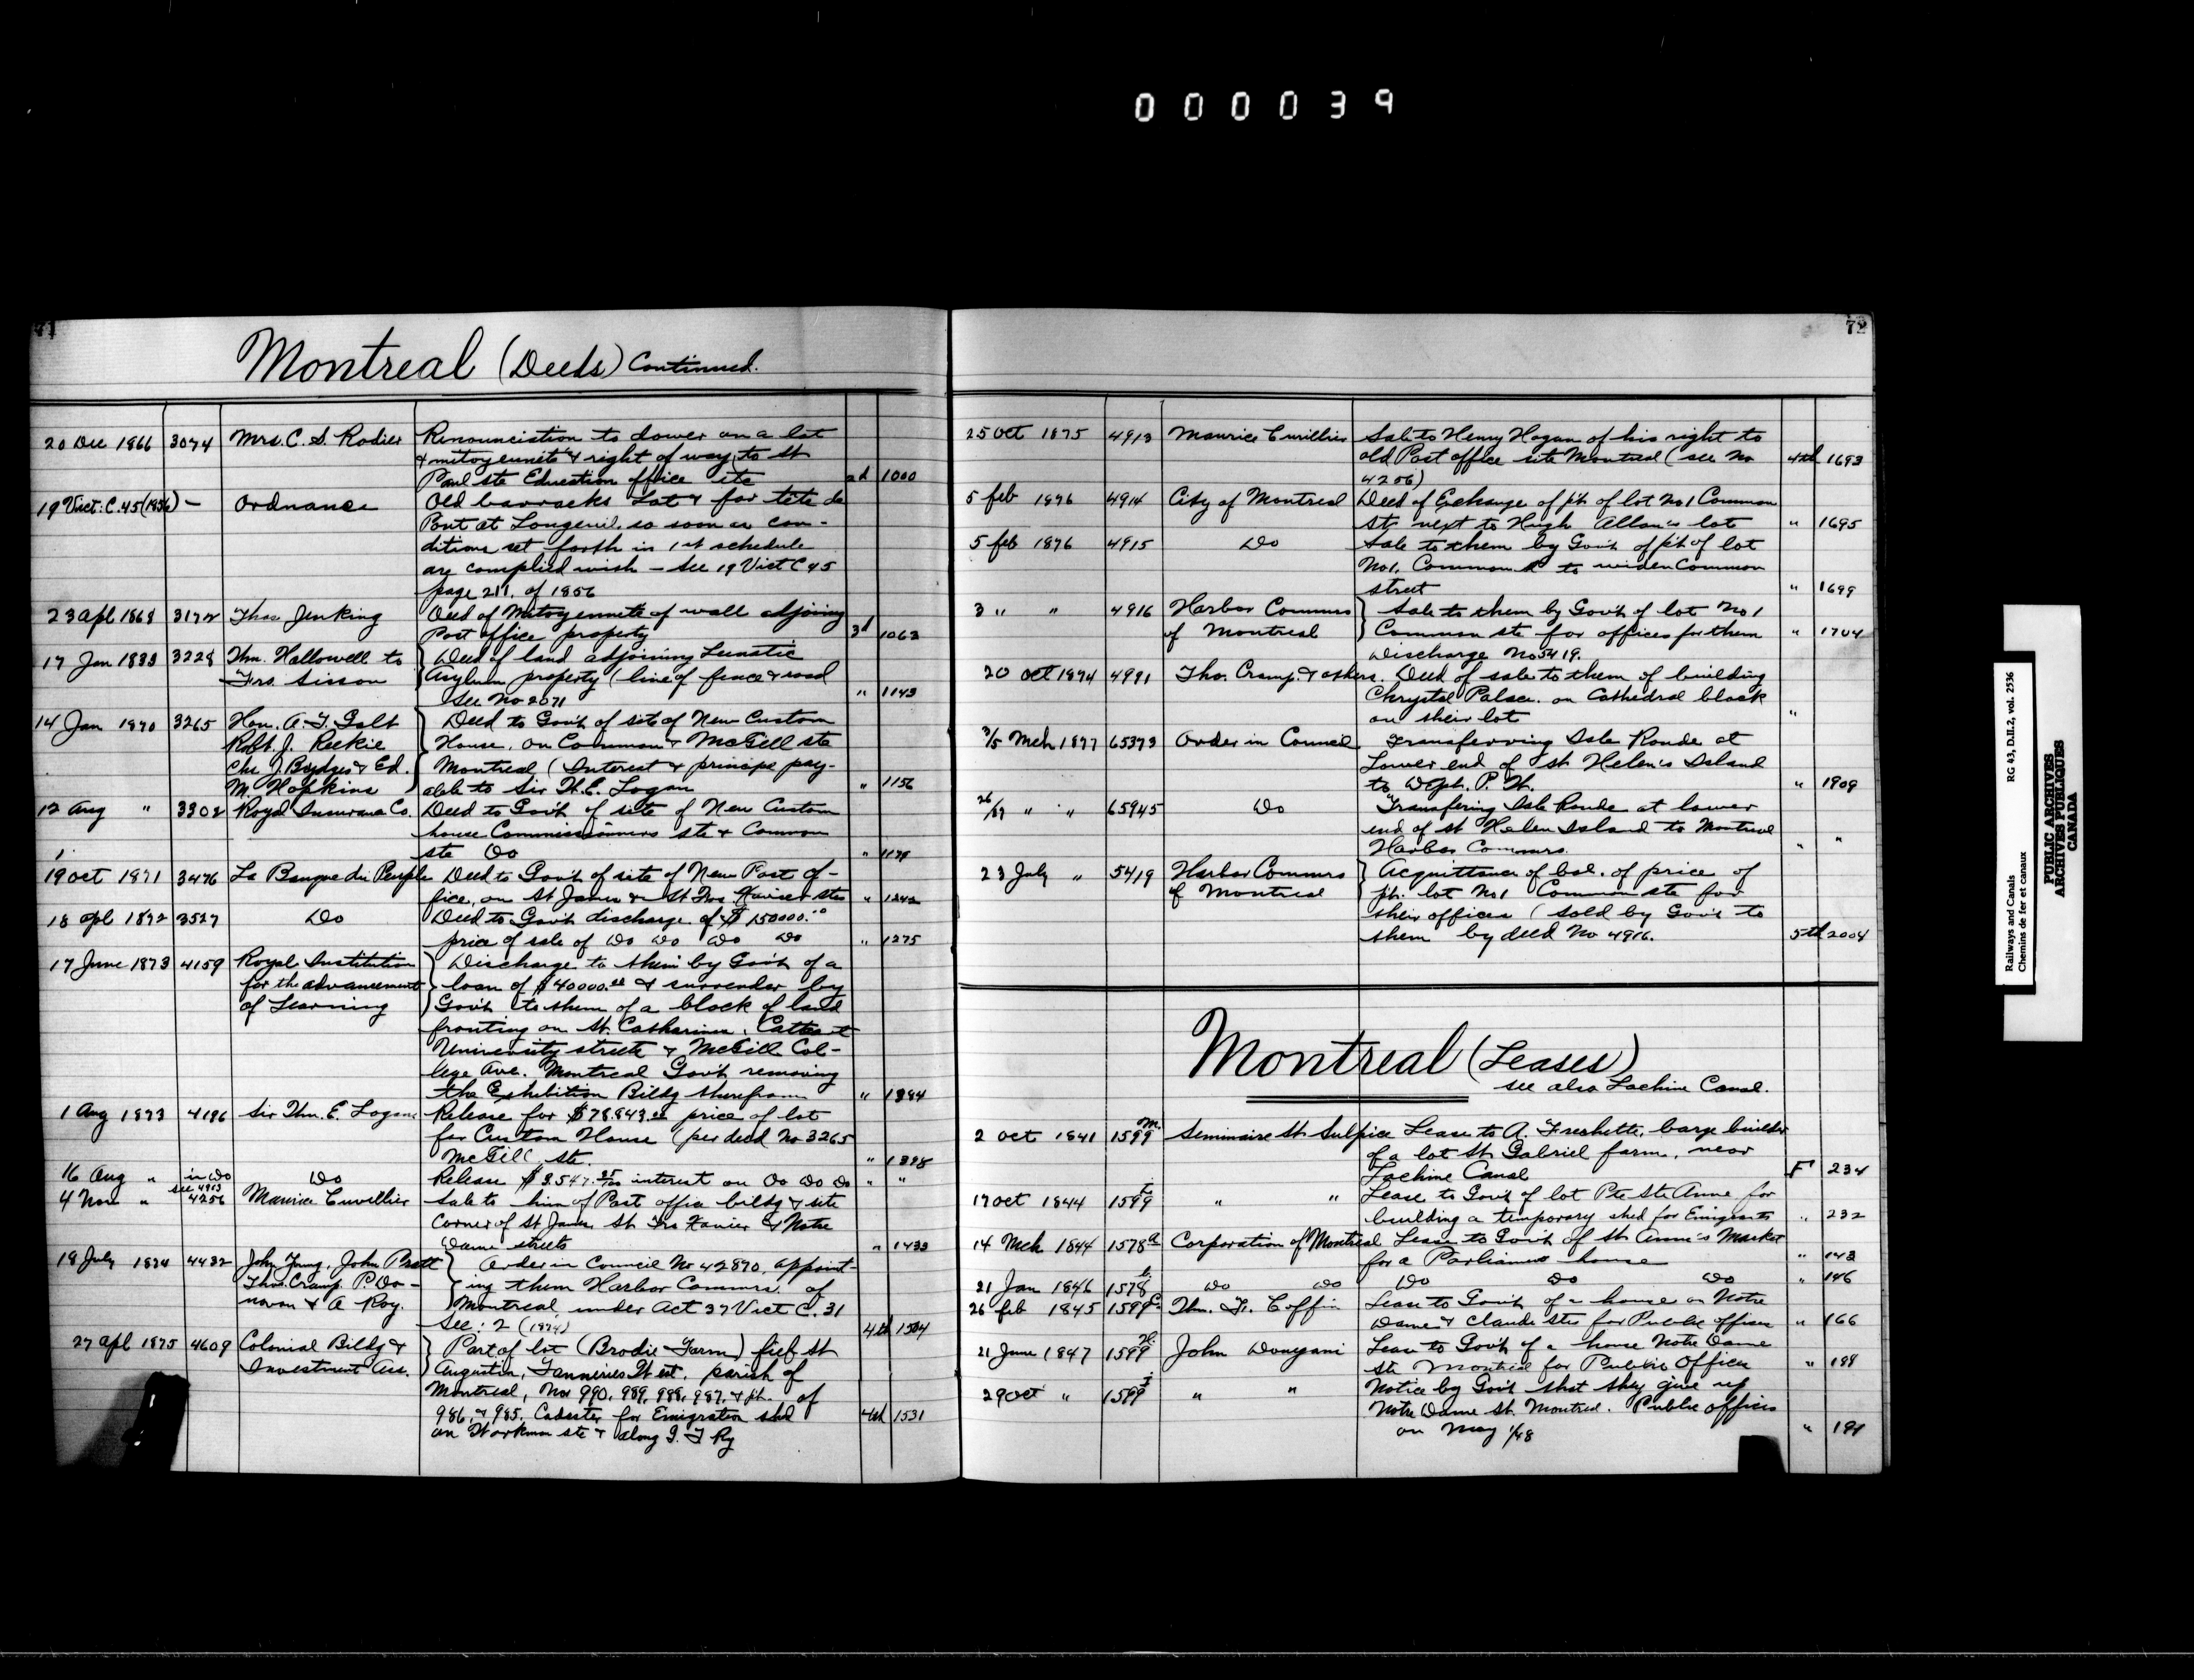 000039
71
Montreal (Deeds) Continued.
20 Dec 1866 3074 Mrs. C. S. Rodier Renounciation to dower on a lot
& mitoyennité & right of way, to St
Paul ste Education office site 2d 1000
19 Vict: C.45 (1856) — Ordnance Old barracks Lot & for tête de
Pont at Longeuil. so soon as con-
ditions set forth in 1st schedule
are complied with — See 19 Vict C 45
page 211. of 1856
23 apl 1868 3172 Thos Jenking Deed of Mitoyennete of wall adjoining
Post office property 3d 1063
17 Jan 1833 3228 Thm. Hallowell to Deed of land adjoining Lunatic
Frs. Sisson Asylum property (line of fence & road
See No 2071 " 1143
14 Jan 1870 3265 Hon. A. T. Galt Deed to Govt of site of New Custom
Robt. J. Reekie House, on Common & McGill sts
Chs J. Brydges & Ed. Montreal (Interest & principe pay-
M. Hopkins able to Sir W.E. Logan " 1156
12 Aug " 3302 Royal Insurance Co. Deed to Govt of site of New Custom
house Commissioners ste & Common
ste Do " 1178
19 oct 1871 3476 La Banque du Peuple Deed to Govt of site of New Post of-
fice, on St James & St Frs Xavier sts " 1242
18 apl 1872 3527 Do Deed to Govt discharge of $150000.00
price of sale of Do Do Do Do " 1275
17 June 1873 4159 Royal Institution Discharge to them by Govt of a
for the advancement loan of $40000.00 & surrender by
of Learning Govt to them of a block of land
fronting on St. Catharines, Cathcart
University streets & McGill Col-
lege Ave. Montreal Govt removing
the Exhibition Bildg therefrom " 1384
1 Aug 1873 4186 Sir Thm. E. Logan Release for $78.843.00 price of lot
for Custom House (per deed No 3265
McGill ste. " 1398
16 Aug " in Do Do Release $3.547.25/00 interest on Do Do Do " "
see 4913
4 Nov " 4256 Maurice Cuvillier Sale to him of Post office bildg & site
Corner of St James St Frs Xavier & Notre
Dame streets " 1433
18 July 1874 4432 John Young, John Pratt Order in Council No 42870, appoint-
Thos. Cramp. P. Do- ing them Harbor Commrs. of
novan & A Roy. Montreal under Act 37 Vict C. 31
Sec: 2 (1874) 4th 1504
27 apl 1875 4609 Colonial Bildg & Part of lot (Brodie Farm) fief St
Investment Ass. Augustin, Tanneries West. parish of
Montreal, Nos 990, 989, 988, 987, & pt. of
986, & 985. Cadaster for Emigration shed 4th 1531
on Workman ste & along G. T Ry
72
25 oct 1875 4913 Maurice Cuvillier Sale to Henry Hogan of his right to
old Post office site Montreal (see No 4th 1693
4256)
5 feb 1876 4914 City of Montreal Deed of Exchange of pt. of lot No 1 Common
St. next to Hugh Allan's lot " 1695
5 feb 1876 4915 Do Sale to them by Govt of pt of lot
No 1. Common St to widen Common
street " 1699
3 " " 4916 Harbor Commrs Sale to them by Govt of lot No 1
of Montreal Common ste for offices for them " 1704
Discharge No 5419.
20 oct 1874 4991 Tho. Cramp. & others. Deed of sale to them of building
Chrystal Palace. on Cathedral block
on their lot "
3/5 Mch 1877 65373 Order in Council Transferring Isle Ronde at
Lower end of St Helen's Island
to Dept. P. W. " 1909
26/29 " " 65945 Do Transfering Isle Ronde at lower
end of St Helen Island to Montreal
Harbor Commrs. " "
23 July " 5419 Harbor Commrs Acquittance of bal. of price of
of Montreal pt. lot No 1 Common ste for
their offices (sold by Govt to
them by deed No 4916. 5th 2004
Montreal (Leases)
see also Lachine Canal.
2 oct 1841 1599 M. Seminaire St Sulpice Lease to A. Frechette, barge builder
of a lot St. Gabriel farm, near
Lachine Canal F 234
17 oct 1844 1599 " " Lease to Govt of lot Pte Ste Anne for
building a temporary shed for Emigrants " 232
14 Mch 1844 1578 a Corporation of Montreal Lease to Govt of St Anne's Market
for a Parliament house " 143
21 Jan 1846 1578 b Do Do Do Do Do " 146
26 feb 1845 1599 c. Thm. F. Coffin Lease to Govt of a house on Notre
Dame & Claude sts for Public offices " 166
21 June 1847 1599 H. John Donegani Lease to Govt of a house Notre Dame
ste Montreal for Public Offices " 188
29 oct " 1599 I " " Notice by Govt that they give up
Notre Dame St. Montreal. Public offices
on May 1/48 " 191
Railways and Canals RG 43, D.II.2, vol. 2536
Chemins de fer et canaux
PUBLIC ARCHIVES
ARCHIVES PUBLIQUES
CANADA